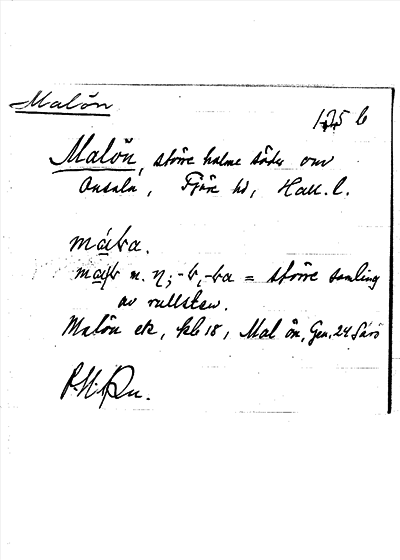 Malön
125 b
Malön, större holme söder om
Onsala, Fjäre hd, Hall. l.
måba.
n. -ba = större samling
av rullsten.
Malön ek, kb 18, Mal ön, Gen. 24 Särö